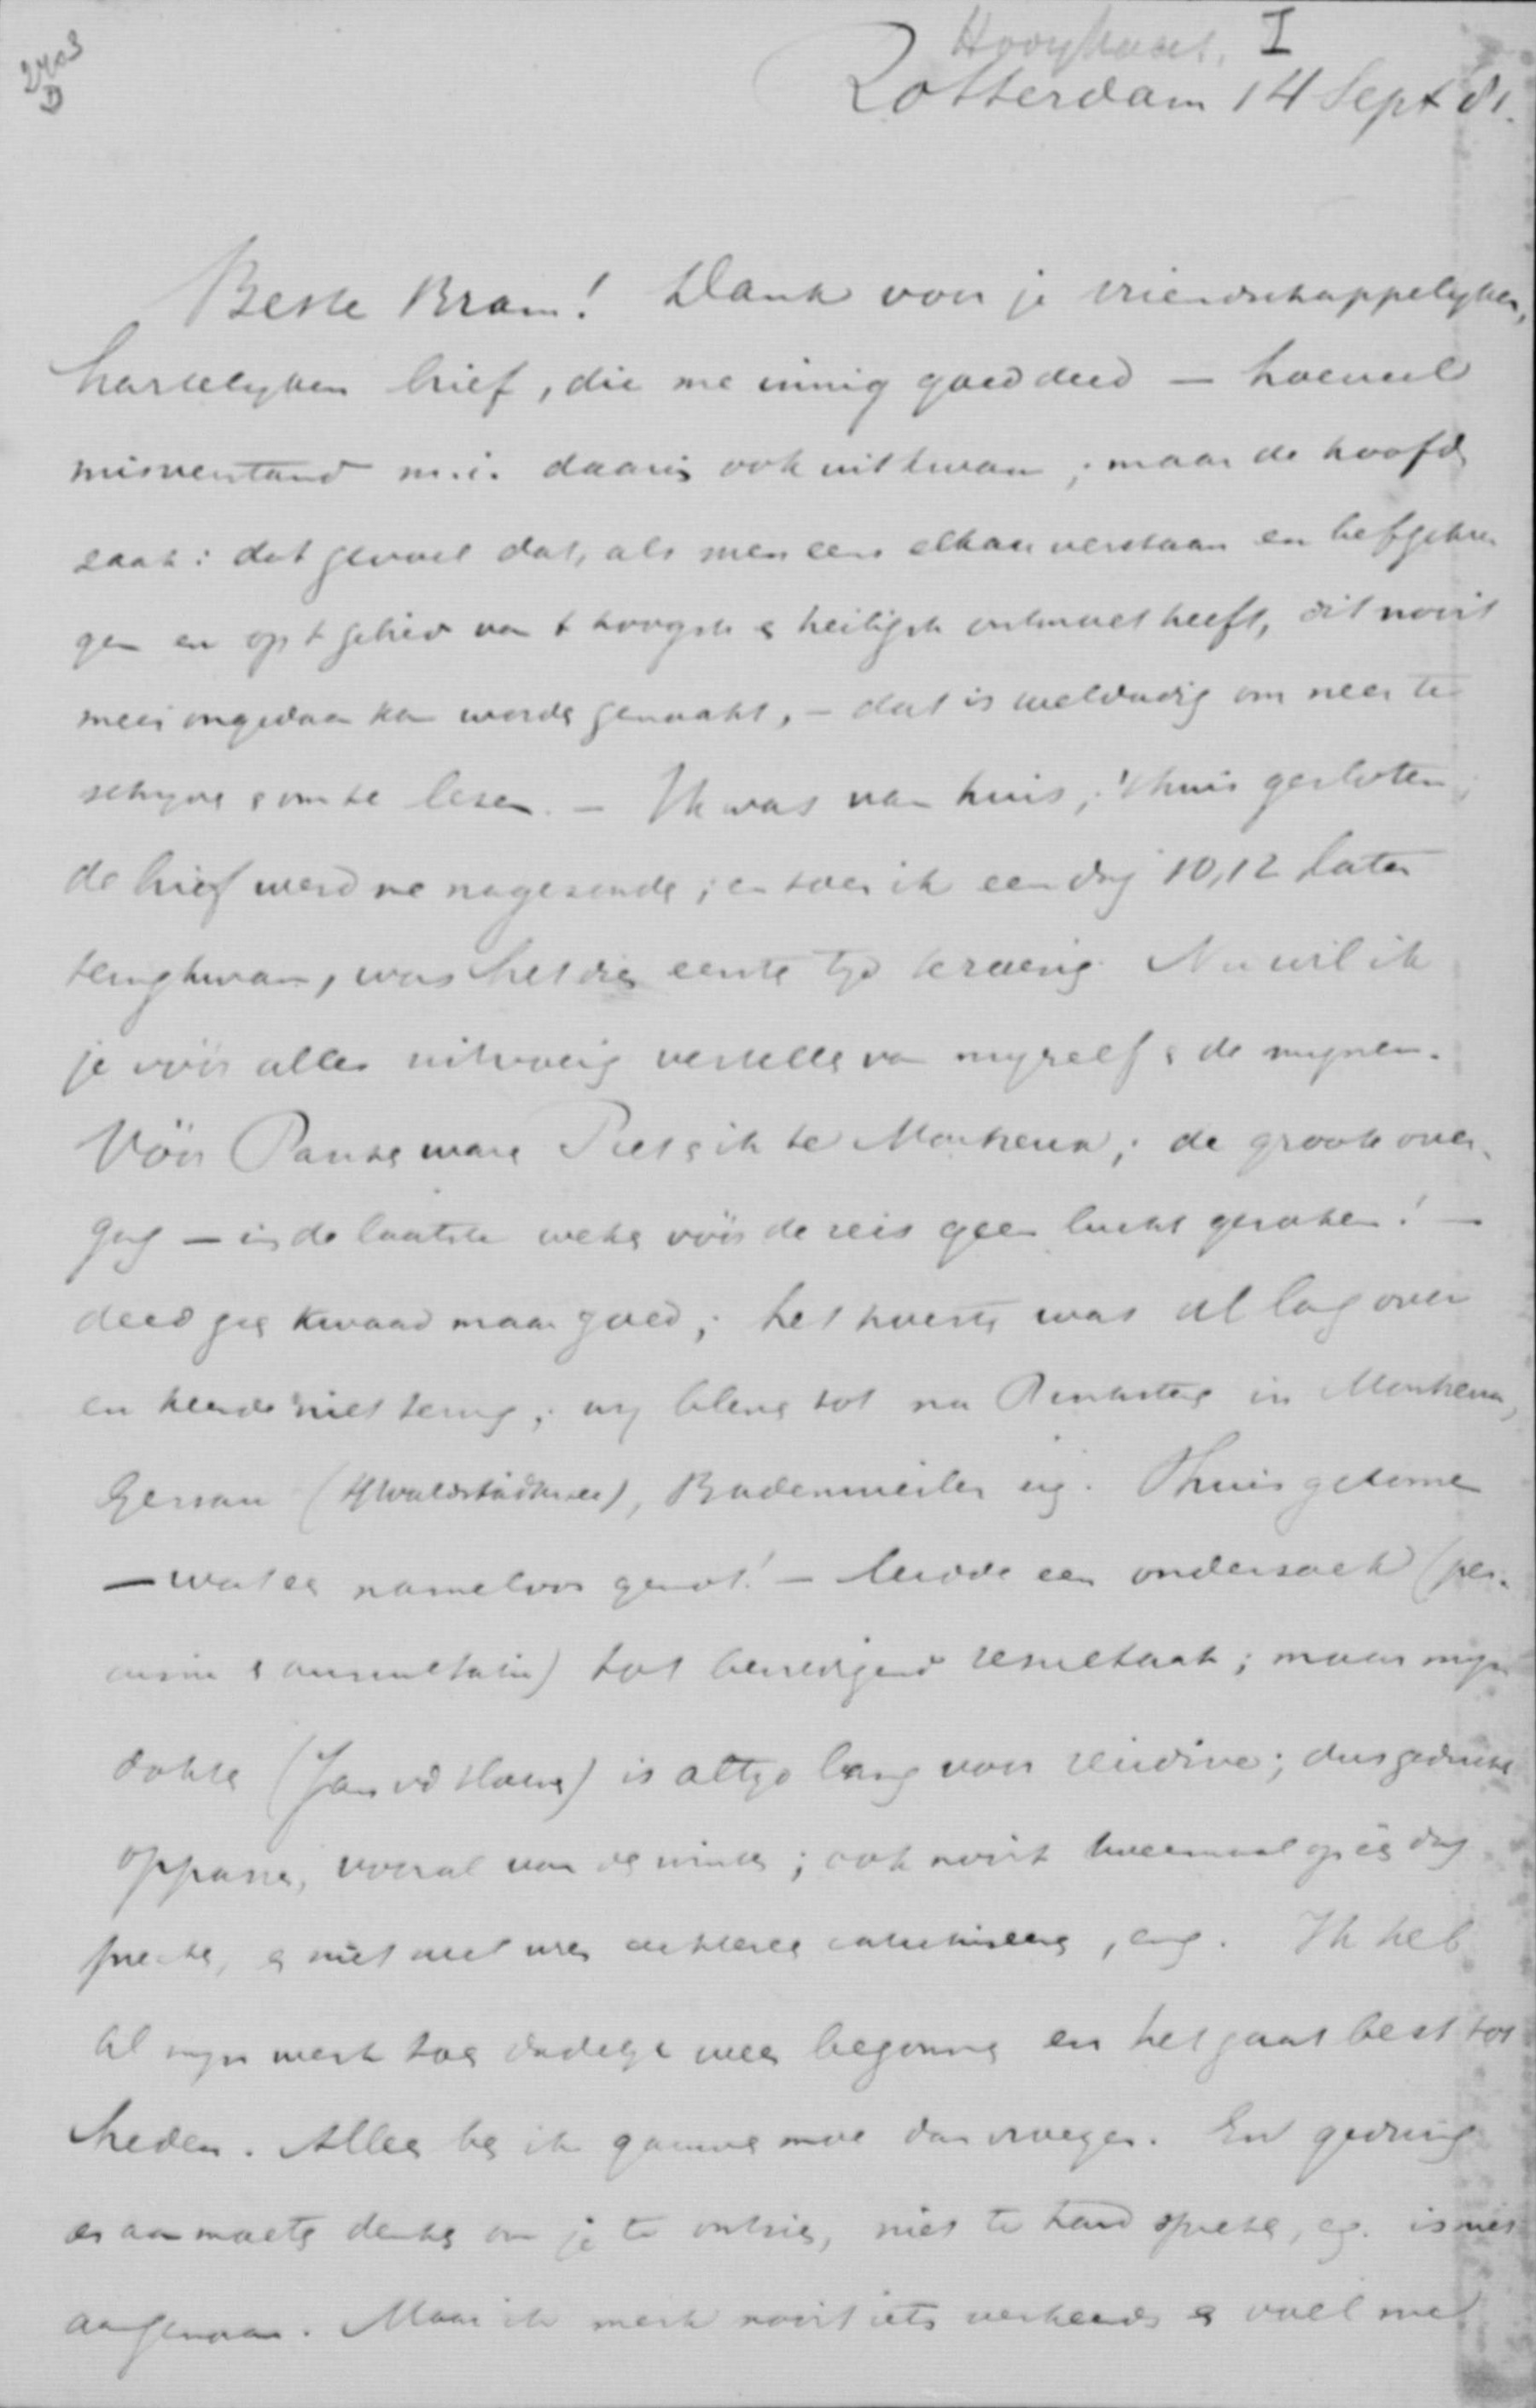 2403
D
Hooykaas. I
Rotterdam 14 Sept 81.
Beste Bram! Dank voor je vriendschappelyken,
hartelyken brief, die me innig goed deed — hoeveel
misverstand m.i. daarin ook uitkwam; maar de hoofd
zaak: dat gevoel dat, als men eens elkaar verstaan en liefgekre
gen en op 't gebied van 't hoogste & heiligste ontmoet heeft, dit nooit
meer ongedaan kan worden gemaakt, — dat is weldadig om neer te
schryven & om te lezen. — Ik was van huis; 't huis gesloten;
de brief werd me nagezonden; en toen ik een dag 10, 12 later
terugkwam, was het die eerste tyd te roerig. Nu wil ik
je vóór alles uitvoerig vertellen van myzelf & de mynen.
Vóór Paschen waren Piet & ik te Montreux; de groote over-
gang — in de laatste weken vóór de reis geen lucht geroken! —
deed geen kwaad maar goed; het hoesten was al lang over
en keerde niet terug; wy bleven tot na Pinksteren in Montreux,
Gersau (4waldstädtersee), Badenweiler enz. Thuis gekomen
— wat een nameloos genot! — leidde een onderzoek (per-
cussie & auscultatie) tot bevredigend resultaat; maar myn
dokter (Jan vd Hoeven) is altyd bang voor recidive; dus
oppassen, vooral van de winter; ook nooit tweemaal op één dag
preeken, & niet veel uren achtereen catechiseeren, enz. Ik heb
al myn werk toen dadelyk weer begonnen en het gaat best tot
heden. Alleen ben ik gauwer moe dan vroeger. En gedurig
er aan moeten denken om je te ontzien, niet te hard spreken, enz. is niet
aangenaam. Maar ik merk nooit iets verkeerds & voel me